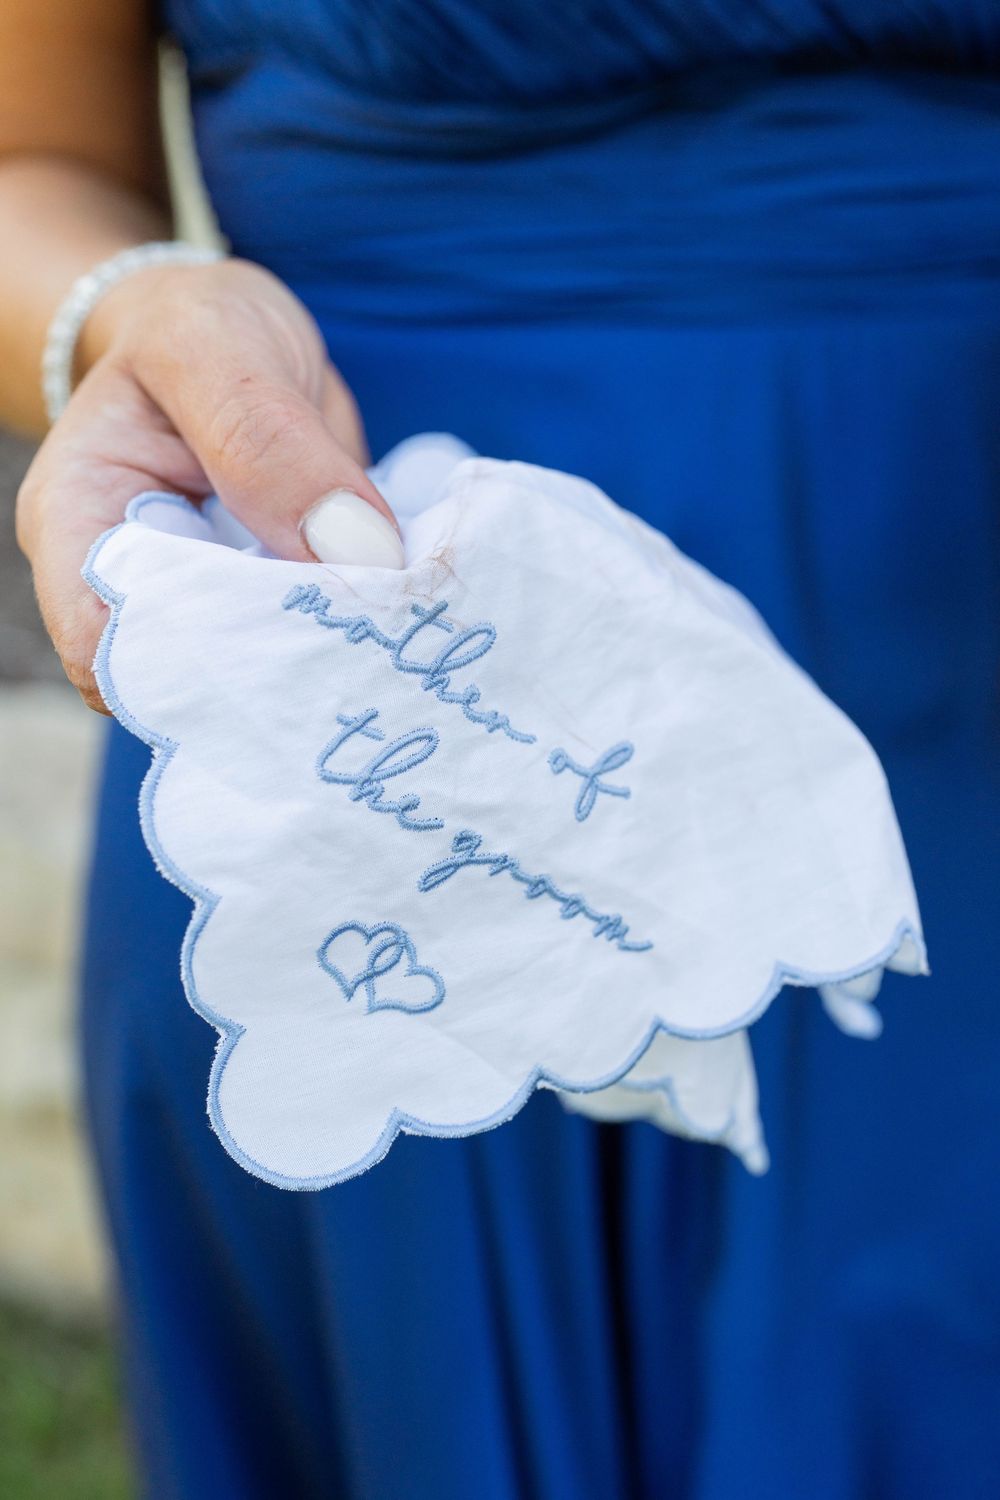 mother of
the groom